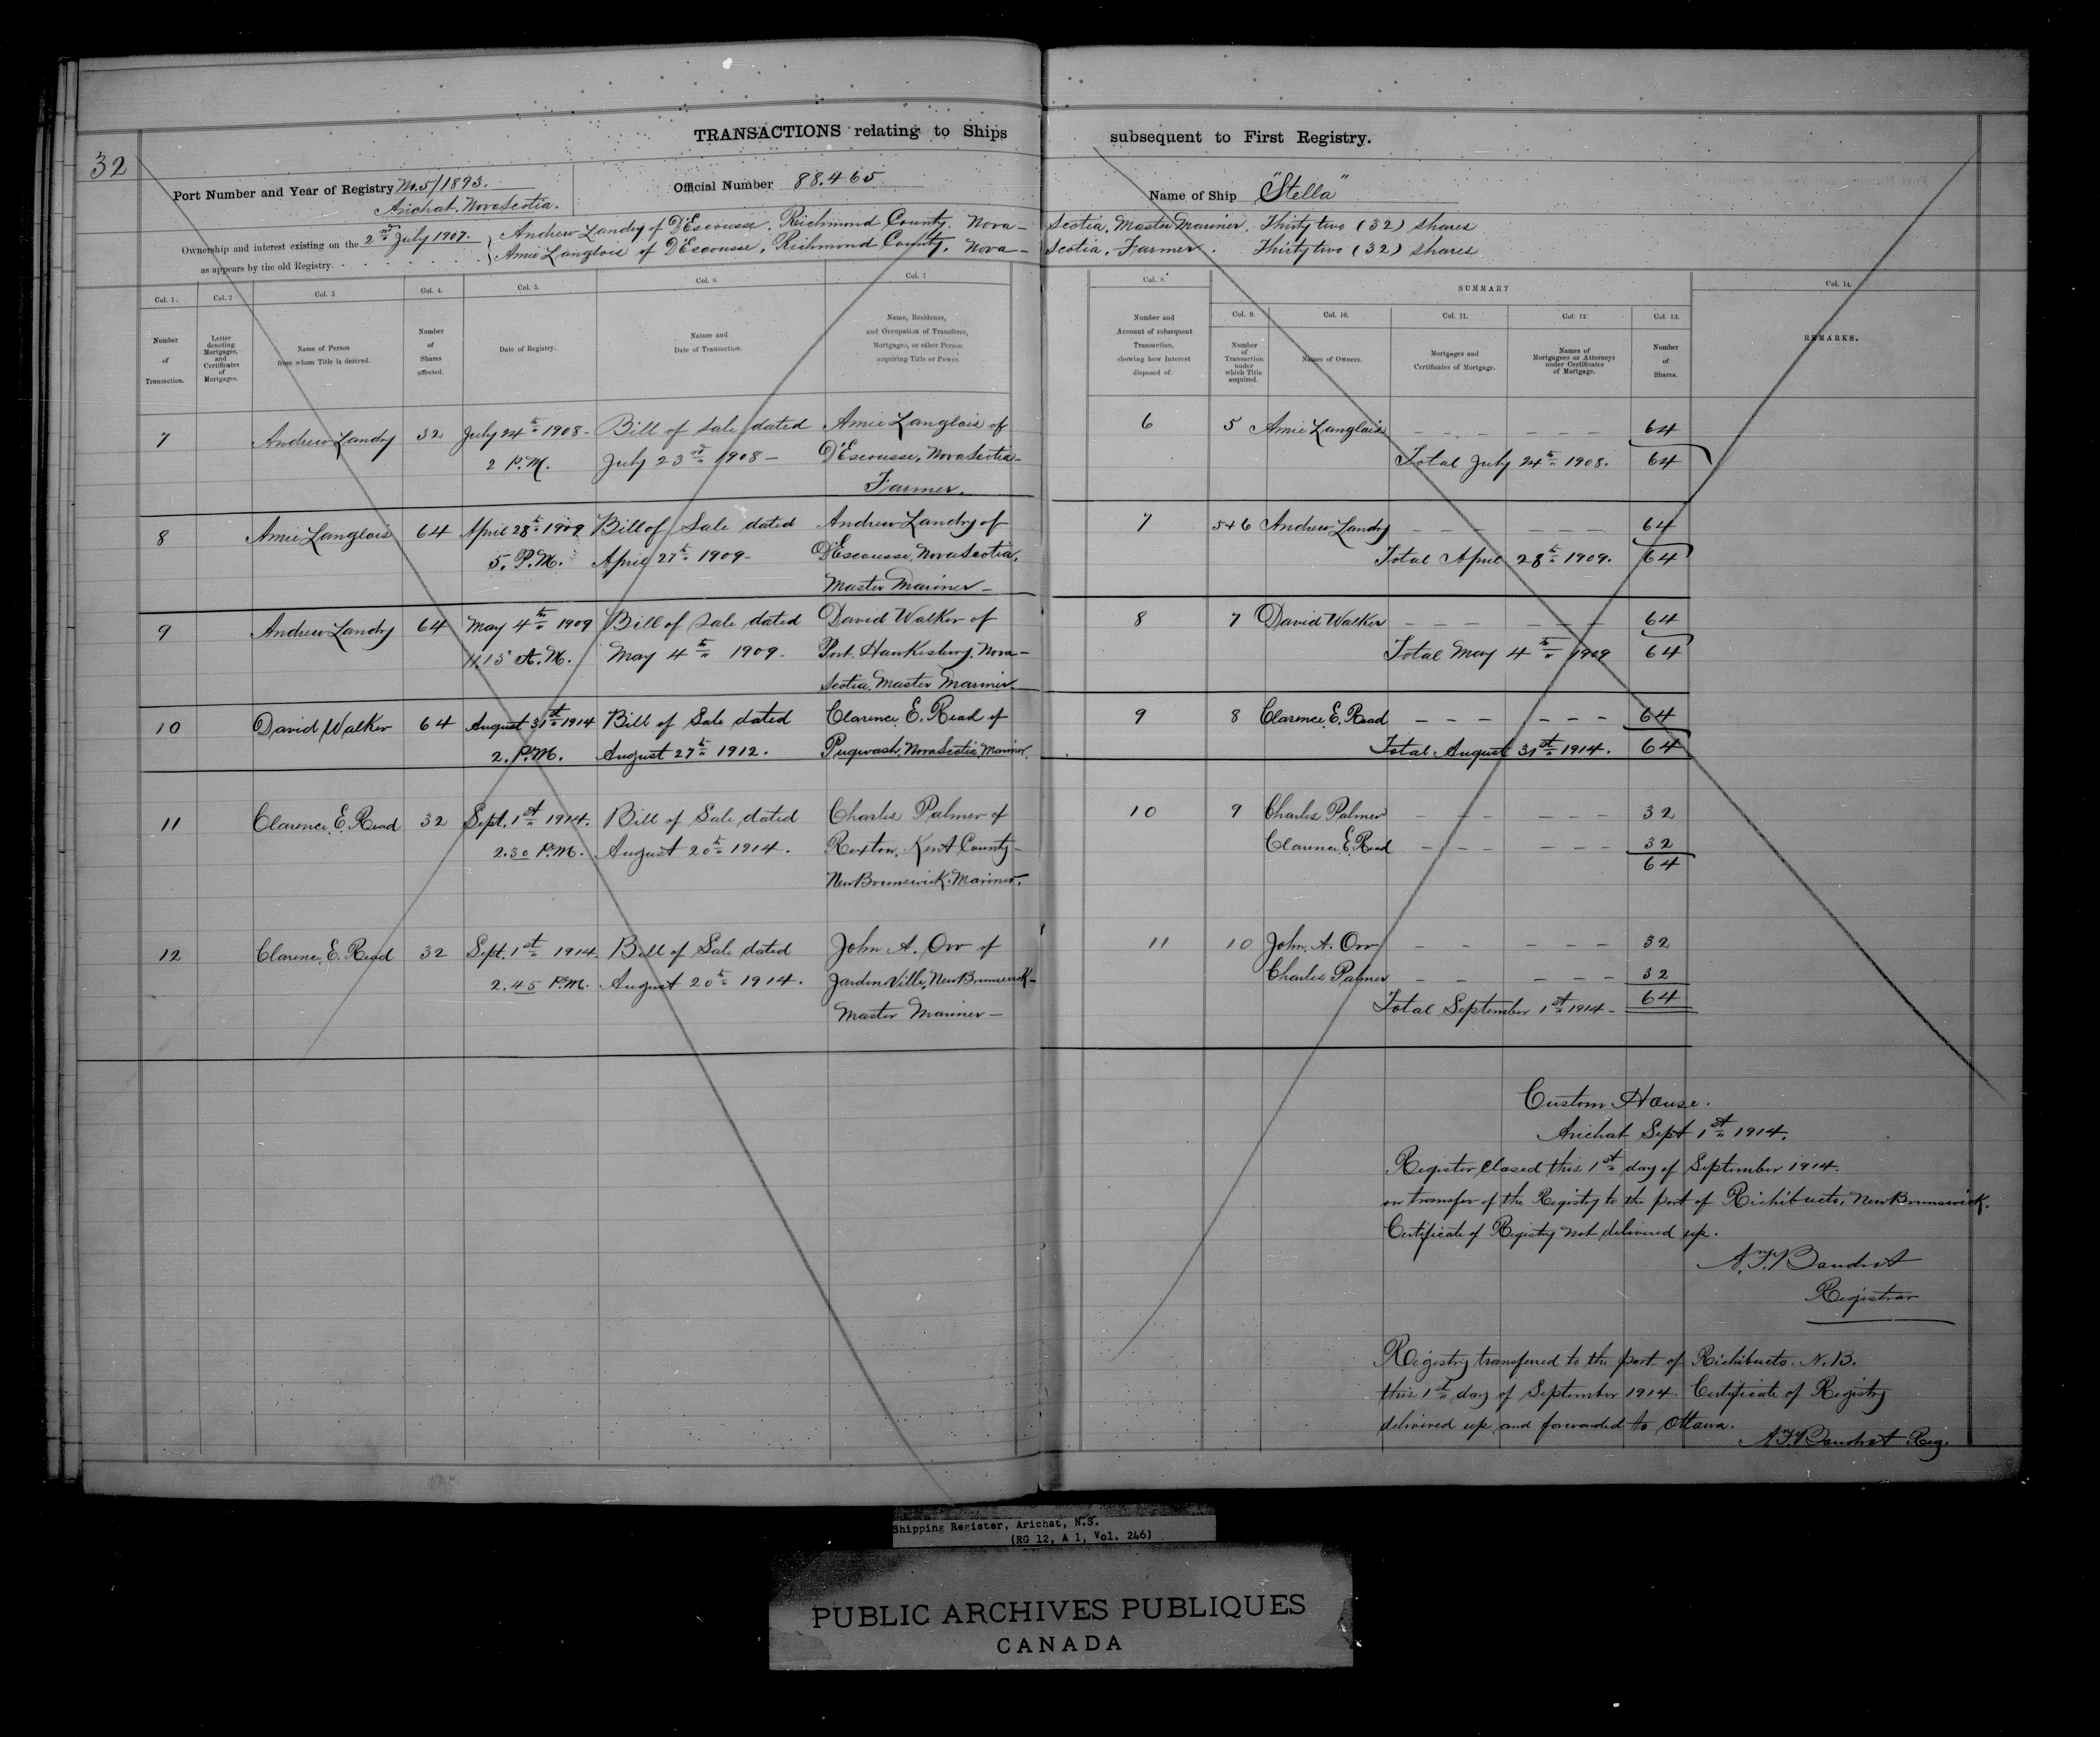 32
TRANSACTIONS relating to Ships subsequent to First Registry.
Port Number and Year of Registry No. 5/1893.
Arichat. Nova Scotia.
Official Number 88.465
Name of Ship "Stella"
Ownership and interest existing on the 2nd July 1907.
as appears by the old Registry.
Andrew Landry of D'Escousse, Richmond County, Nova Scotia, Master Mariner. Thirty two (32) shares
Amie Langlois of D'Escousse, Richmond County, Nova Scotia, Farmer. Thirty two (32) shares
SUMMARY
Col. 1. Number of Transaction.
Col. 2 Letter denoting Mortgages, and Certificates of Mortgages.
Col. 3 Name of Person from whom Title is derived.
Col. 4. Number of Shares affected.
Col. 5. Date of Registry.
Col. 6 Nature and Date of Transaction.
Col. 7 Name, Residence, and Occupation of Transferee, Mortgagee, or other Person acquiring Title or Power.
Col. 8 Number and Account of subsequent Transaction, showing how Interest disposed of.
Col. 9. Number of Transaction under which Title acquired.
Col. 10. Names of Owners.
Col. 11. Mortgages and Certificates of Mortgage.
Col. 12 Names of Mortgagees or Attorneys under Certificates of Mortgage.
Col. 13. Number of Shares.
Col. 14. REMARKS.
7 Andrew Landry 32 July 24th 1908 - Bill of Sale dated Amie Langlois of
2 P.M. July 23rd 1908 - D'Escousse, Nova Scotia -
Farmer.
6 5 Amie Langlois 64
Total July 24th 1908. 64
8 Amie Langlois 64 April 28th 1909 Bill of Sale dated Andrew Landry of
5. P.M. April 27th 1909 - D'Escousse, Nova Scotia,
Master Mariner -
7 5+6 Andrew Landry 64
Total April 28th 1909. 64
9 Andrew Landry 64 May 4th 1909 Bill of Sale dated David Walker of
11.15 A.M. May 4th 1909 - Port Hawkesbury, Nova -
Scotia, Master Mariner.
8 7 David Walker 64
Total May 4th 1909 64
10 David Walker 64 August 31st 1914 Bill of Sale dated Clarence E. Read of
2. P.M. August 27th 1912. Pugwash, Nova Scotia, Mariner.
9 8 Clarence E. Read 64
Total August 31st 1914. 64
11 Clarence E. Read 32 Sept. 1st 1914. Bill of Sale dated Charles Palmer of
2.30 P.M. August 20th 1914. Rexton, Kent County -
New Brunswick. Mariner.
10 9 Charles Palmer 32
Clarence E. Read 32
64
12 Clarence E. Read 32 Sept. 1st 1914 Bill of Sale dated John A. Orr of
2.45 P.M. August 20th 1914. Jardineville, New Brunswick -
Master Mariner -
11 10 John A. Orr 32
Charles Palmer 32
Total September 1st 1914 - 64
Custom House.
Arichat Sept 1st 1914.
Register closed this 1st day of September 1914.
on transfer of the Registry to the port of Richibucto, New Brunswick.
Certificate of Registry not delivered up.
Registrar
Registry transferred to the port of Richibucto. N.B.
this 1st day of September 1914. Certificate of Registry
delivered up and forwarded to Ottawa.
Reg.
Shipping Register, Arichat, N.S.
(RG 12, A 1, Vol. 246)
PUBLIC ARCHIVES PUBLIQUES
CANADA